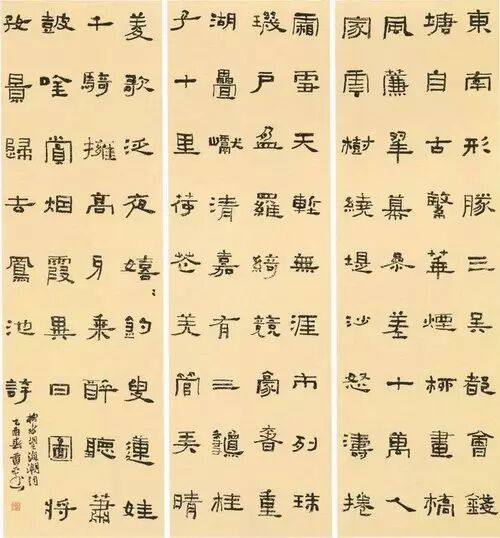 東南形勝三吳都會錢
塘自古繁華煙柳畫橋
風簾翠幕參差十萬人
家雲樹繞堤沙怒濤捲
霜雪天塹無涯市列珠
璣戶盈羅綺競豪奢重
湖疊巘清嘉有三秋桂
子十里荷花羌管弄晴
菱歌泛夜嬉〻釣叟蓮娃
千騎擁高牙乘醉聽簫
鼓吟賞烟霞異日圖將
好景歸去鳳池誇
柳永望海潮詞
乙酉春